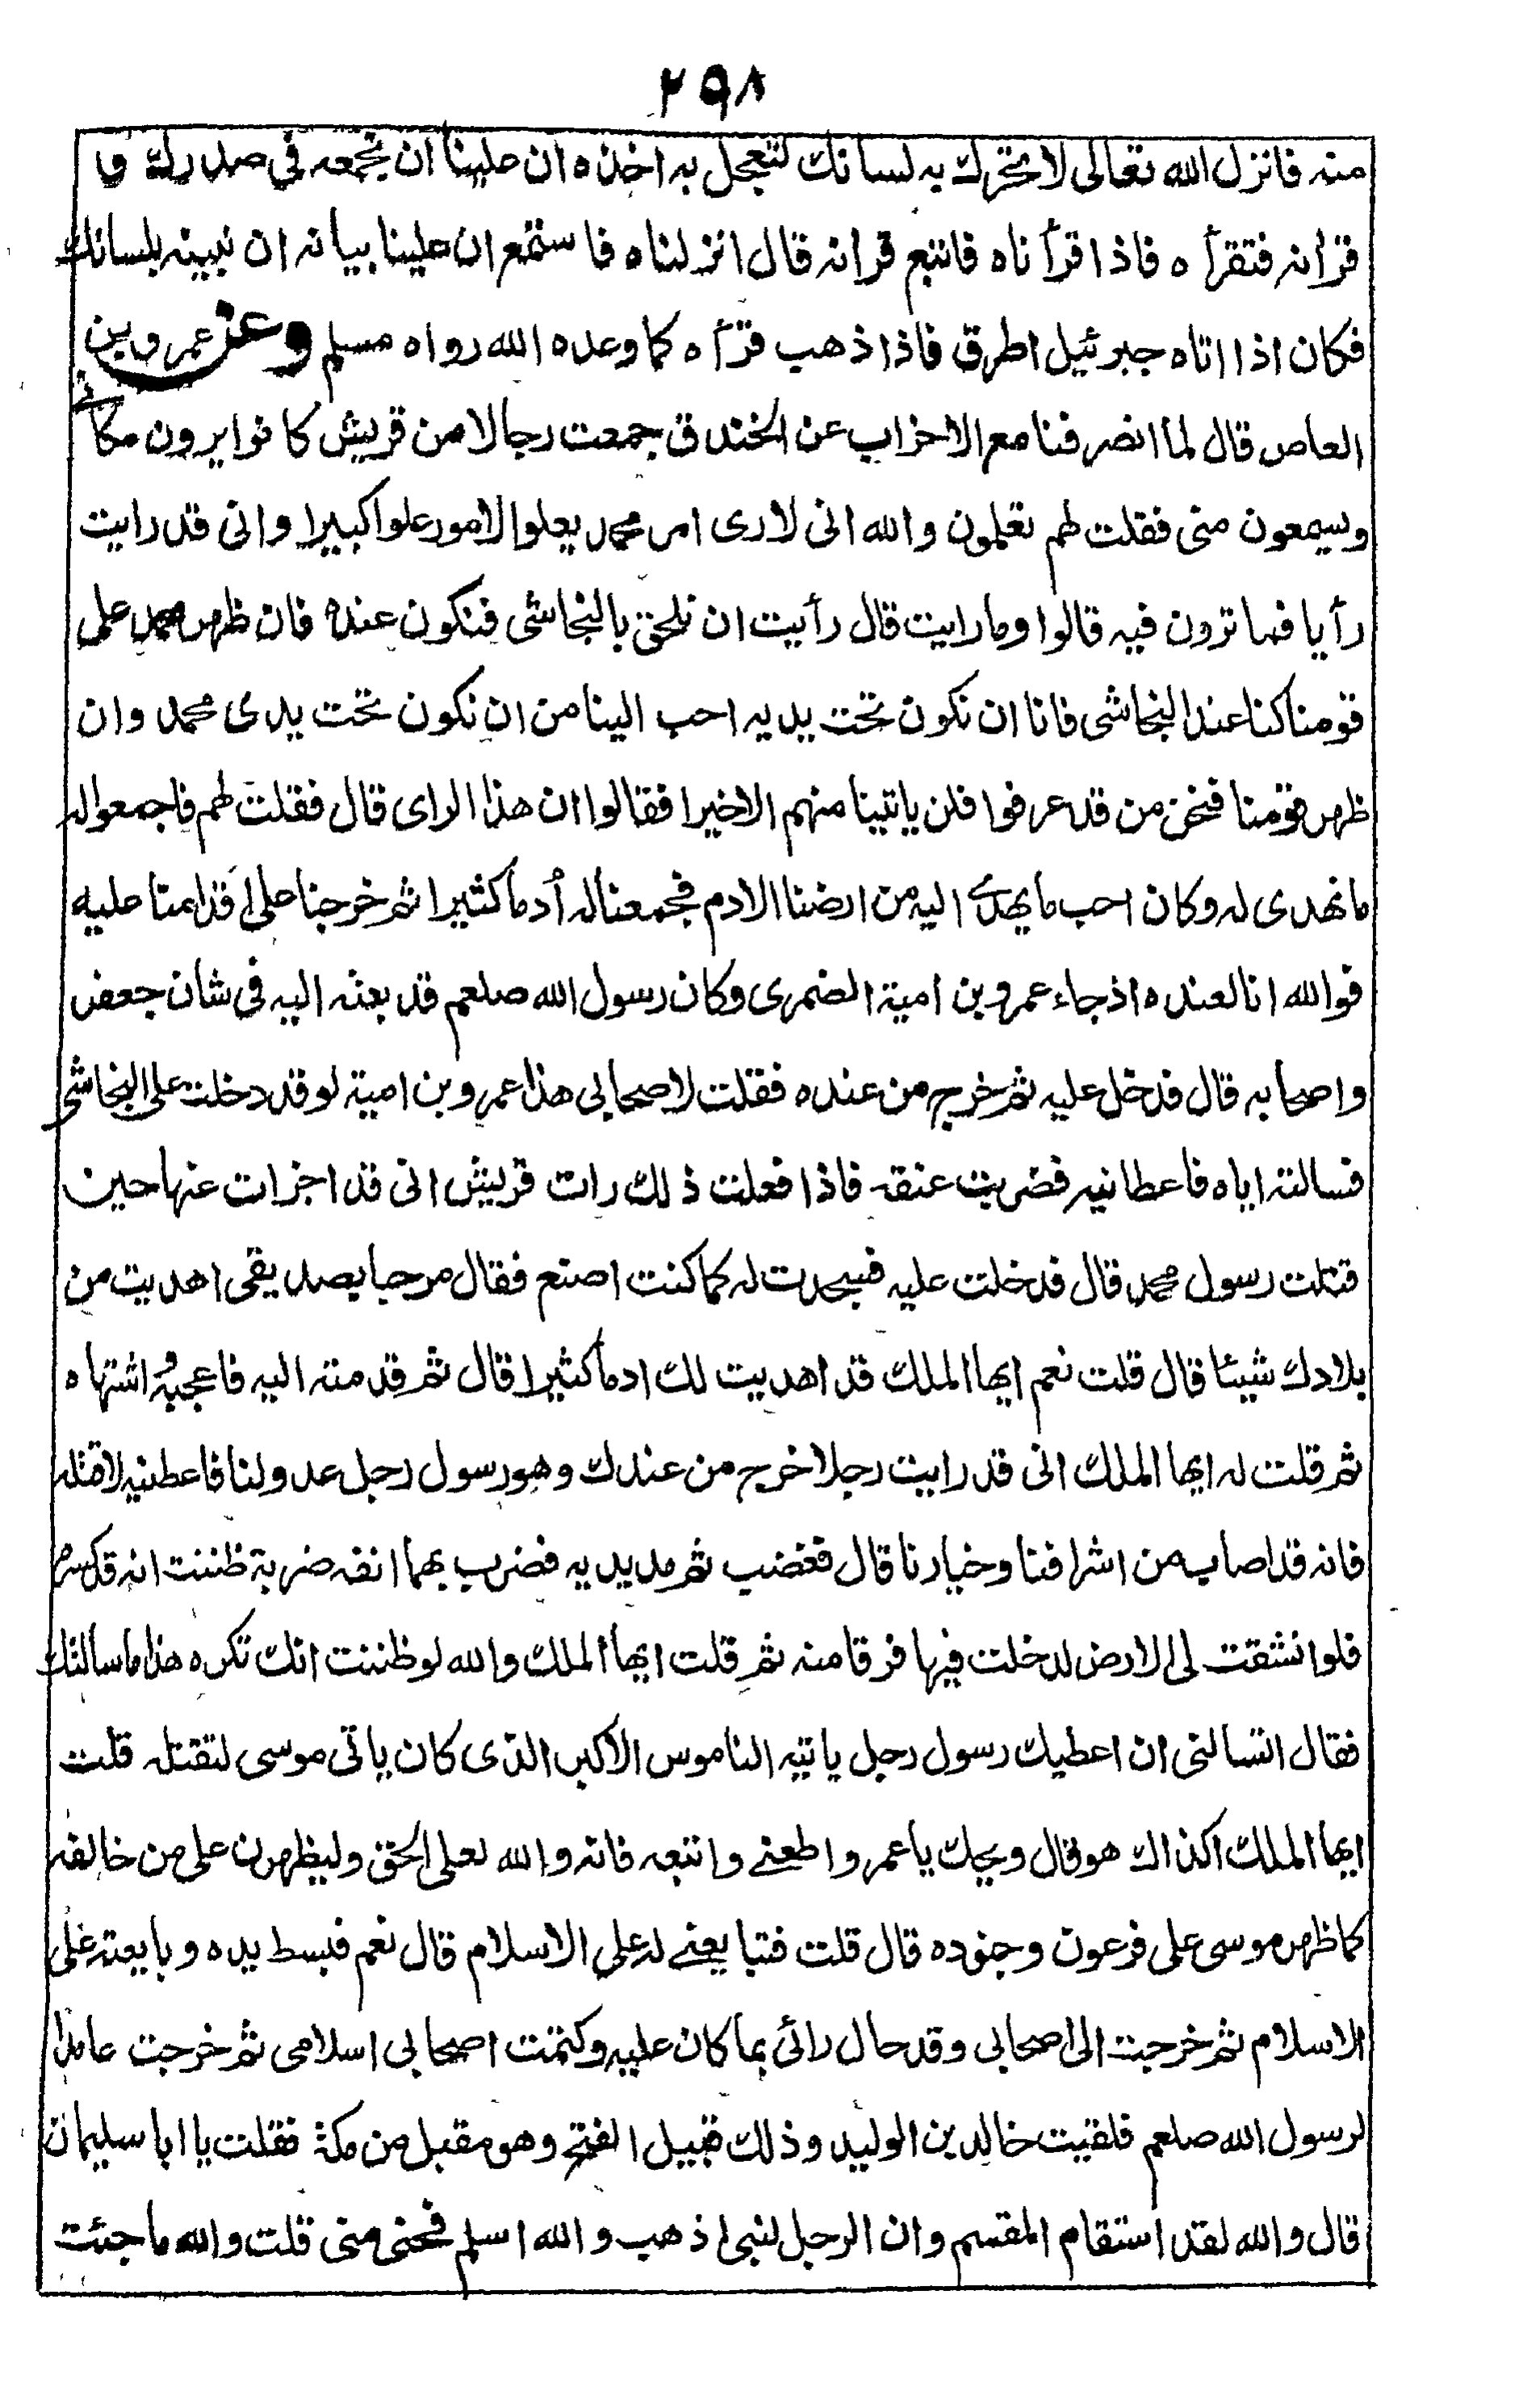 ۲۹۸
منه فانزل الله تعالى لا تحرك به لسانك لتعجل به اخذه ان علينا ان نجمعه فى صدرك و
قرانه فتقرأه فاذا قرأناه فاتبع قرانه قال انزلناه فاستمع ان علينا بيانه ان نبينه بلسانك
فكان اذا اتاه جبرئيل اطرق فاذا ذهب قرأه كما وعده الله رواه مسلم وعن عمرو بن
العاص قال لما انصرفنا مع الاحزاب عن الخندق جمعت رجالا من قريش كانوا يرون مكانى
وسيمعون منى فقلت لهم تعلمون والله انى لارى امر محمد يعلوا الامور علوا كبيرا وانى قد رايت
رأيا فما ترون فيه قالوا وما رايت قال رأيت ان نلحق بالنجاشى فنكون عنده فان ظهر محمد على
قومنا كنا عند النجاشى فانا ان نكون تحت يديه احب الينا من ان نكون تحت يدى محمد وان
ظهر قومنا فنحن من قد عرفوا فلن ياتينا منهم الاخيرا فقالوا ان هذا الراى قال فقلت لهم فاجمعوا له
ما نهدى له وكان احب ما يهدى اليه من ارضنا الادم فجمعنا له أدما كثيرا ثم خرجنا حلى قدمنا عليه
فوالله انا لعنده اذ جاء عمرو بن امية الضمرى وكان رسول الله صلعم قد بعثه اليه فى شان جعفر
واصحابه قال فدخل عليه ثم خرج من عنده فقلت لاصحابى هذا عمرو بن امية لو قد دخلت على النجاشى
فسالته اياه فاعطانيه فضربت عنقه فاذا فعلت ذلك رات قريش انى قد اجزات عنها حين
قتلت رسول محمد قال فدخلت عليه فسجدت له كما كنت اصنع فقال مرحبا بصديقى اهديت من
بلادك شيئا قال قلت نعم ايها الملك قد اهديت لك ادما كثيرا قال ثم قدمته اليه فاعجبه واشتهاه
ثم قلت له ايها الملك انى قد رايت رجلا خرج من عندك وهو رسول رجل عدو لنا فاعطنيه لاقتله
فانه قد اصاب من اشرافنا وخيارنا قال فغضب ثم مد يديه فضرب بهما انفه ضربة ظننت انه قد كسره
فلو انشقت لى الارض لدخلت فيها فرقا منه ثم قلت ايها الملك والله لو ظننت انك تكره هذا ما سالتك
فقال اتسالنى ان اعطيك رسول رجل ياتيه الناموس الاكبر الذى كان ياتى موسى لتقتله قلت
ايها الملك اكذاك هو قال ويحك يا عمرو اطعنے واتبعه فانه والله لعلى الحق وليظهرن على من خالفه
كما ظهر موسى على فرعون وجنوده قال قلت فتبايعنے له على الاسلام قال نعم فبسط يده وبايعته على
الاسلام ثم خرجت الى اصحابى وقد حال رائى بما كان عليه وكتمت اصحابى اسلامى ثم خرجت عامدا
لرسول الله صلعم فلقيت خالد بن الوليد وذلك قبيل الفتح وهو مقبل من مكة فقلت يا ابا سليمان
قال والله لقد استقام المقسم وان الرجل لنبى اذهب والله اسلم فحتى متى قلت والله ما جئت